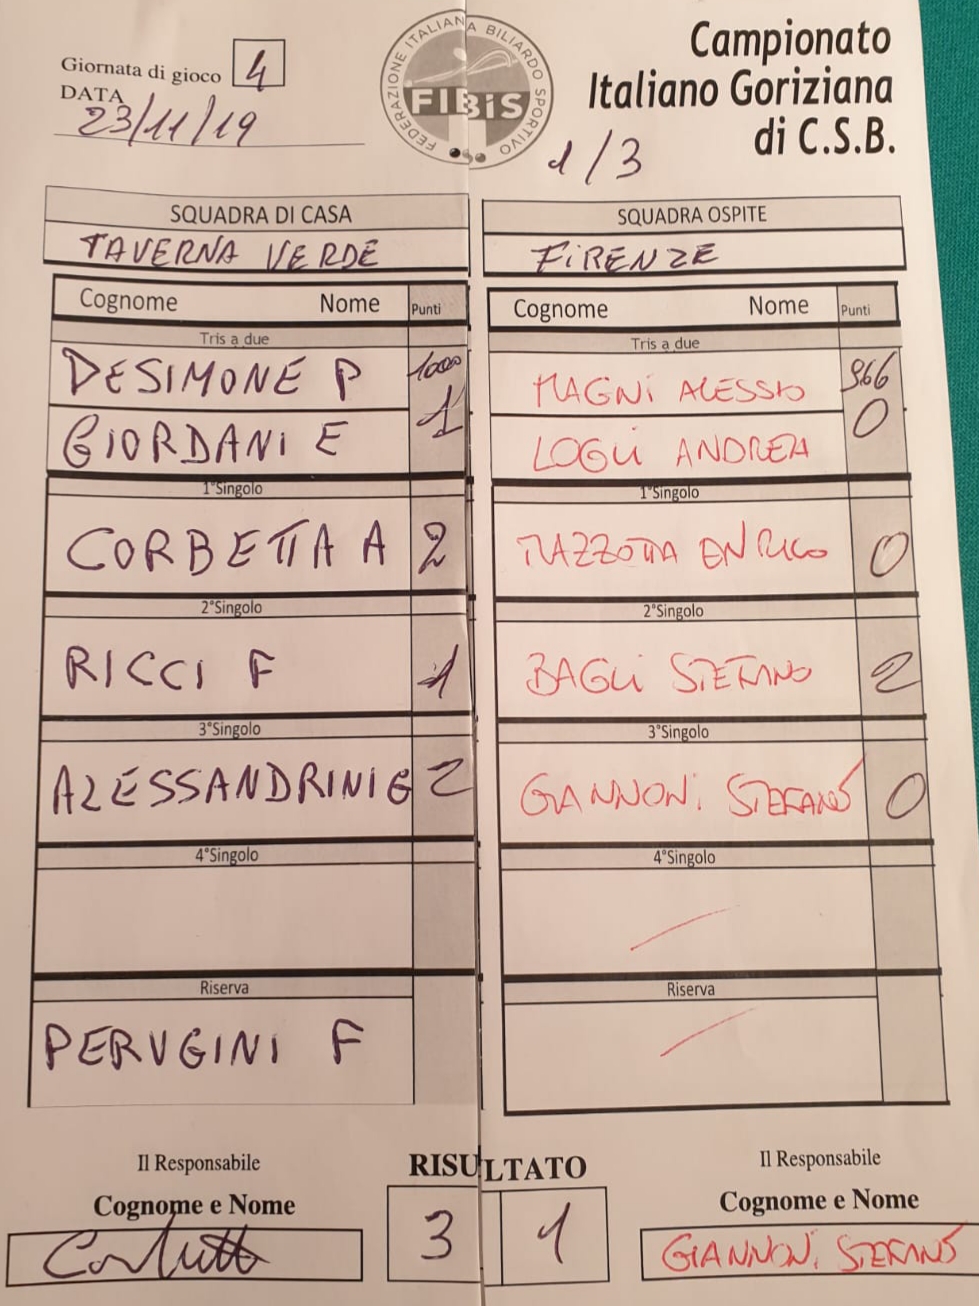 Giornata di gioco 4
DATA
23/11/19
FEDERAZIONE ITALIANA BILIARDO SPORTIVO
FIBiS
Campionato
Italiano Goriziana
di C.S.B.
1/3
SQUADRA DI CASA
TAVERNA VERDE
Cognome Nome Punti
Tris a due
DESIMONE P 1000
1
GIORDANI E
1°Singolo
CORBETTA A 2
2°Singolo
RICCI F 1
3°Singolo
ALESSANDRINI G 2
4°Singolo
Riserva
PERUGINI F
SQUADRA OSPITE
FIRENZE
Cognome Nome Punti
Tris a due
MAGNI ALESSIO 966
0
LOGLI ANDREA
1°Singolo
MAZZOTTA ENRICO 0
2°Singolo
BAGLI STEFANO 2
3°Singolo
GIANNONI STEFANO 0
4°Singolo
Riserva
Il Responsabile
Cognome e Nome
RISULTATO
3 1
Il Responsabile
Cognome e Nome
GIANNONI STEFANO